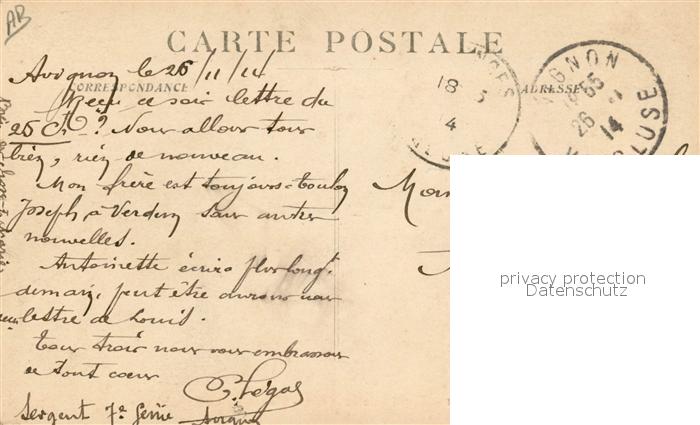 AB
CARTE POSTALE
Avignon le 26/11/14
CORRESPONDANCE
ADRESSE
Reçu ce soir lettre du
25 Ct? Nous allons tous
bien, rien de nouveau.
Mon frère est toujours à Toulon
Joseph, à Verdun sans autres
nouvelles.
Antoinette écrira plus longt
demain, peut être aurons nous
lettre de Louis.
Tous trois nous vous embrassons
de tout cœur
Sergent 7e Génie
Avignon
18
4
AVIGNON
26
14
VAUCLUSE
privacy protection
Datenschutz